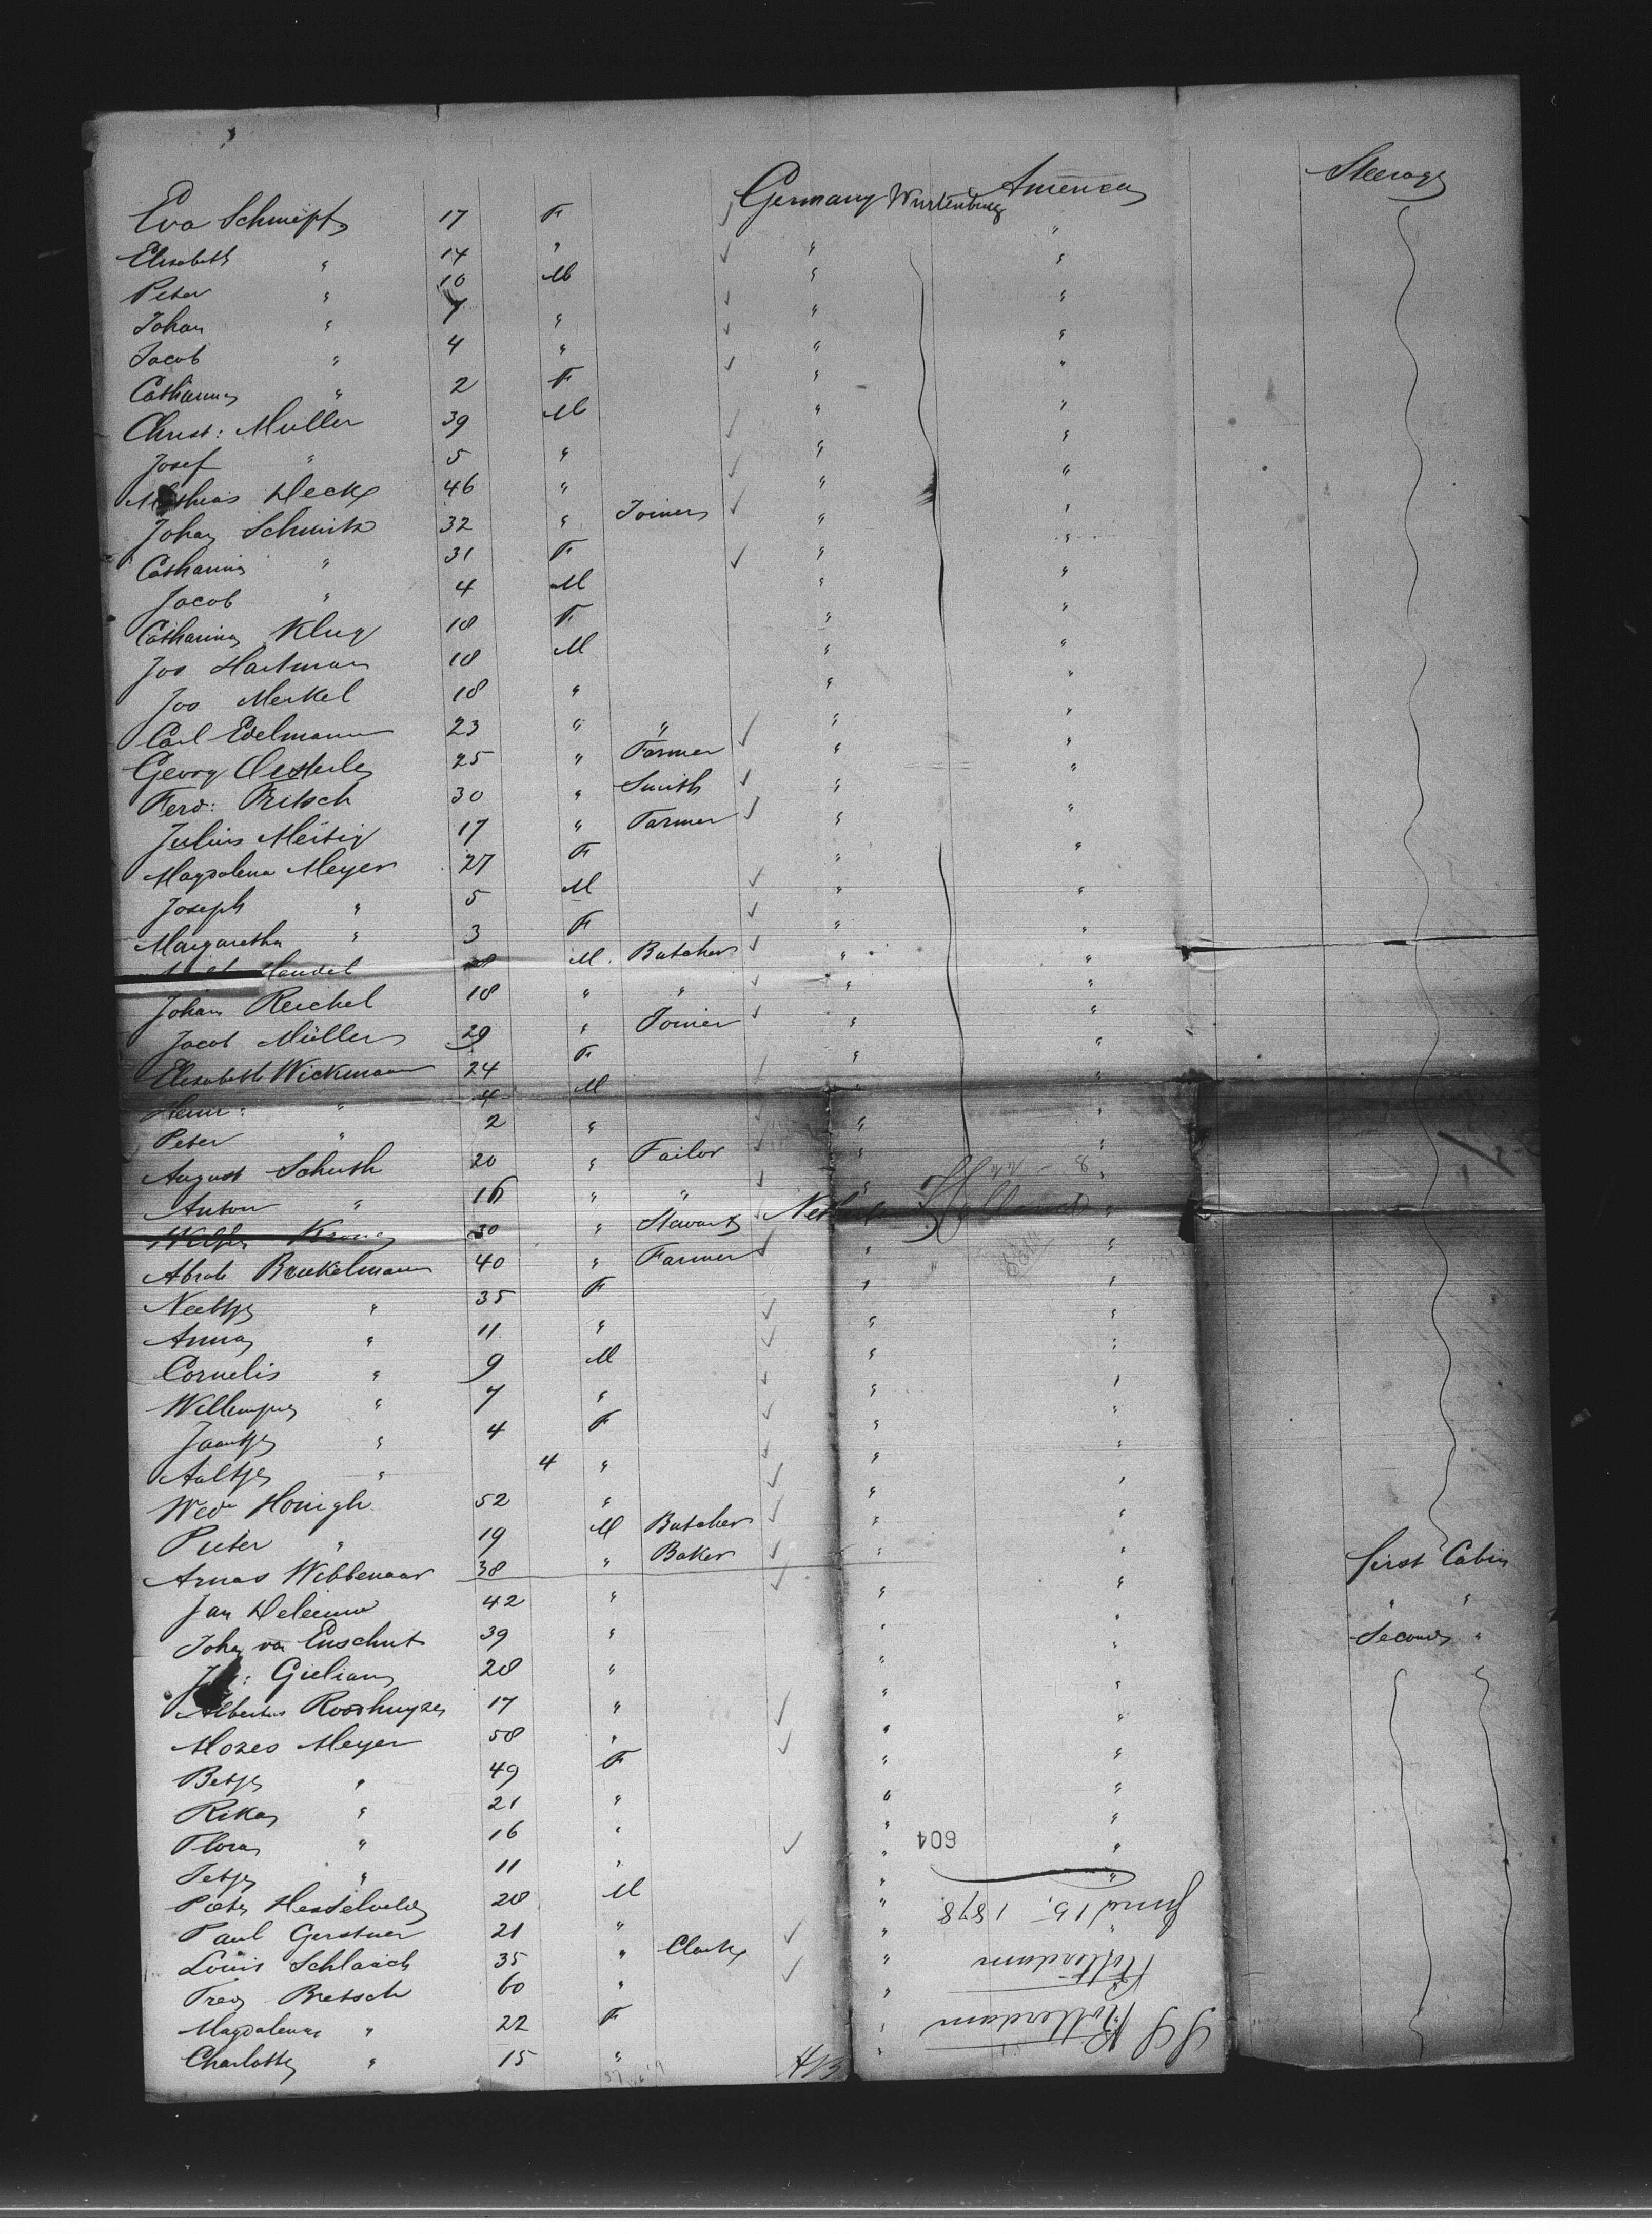 Eva Schmipf 17 F Germany Wurtenburg America Steerage
Elisabeth " 14 " " "
Peter " 10 M " "
Johan " 7 " " "
Jacob " 4 " " "
Catharina " 2 F " "
Christ: Muller 39 M " "
Josef " 5 " " "
Mathias Decke 46 " " "
Johan Schmitz 32 " Joiner " "
Catharina " 31 F " "
Jacob " 4 M " "
Catharina Klug 18 F " "
Jos Hartman 18 M " "
Jos Merkel 18 " " "
Carl Edelmann 23 " " " "
Georg Oesterle 25 " Farmer " "
Ferd: Pritsch 30 " Smith " "
Julius Meisig 17 " Farmer " "
Magdalena Meyer 27 F " "
Joseph " 5 M " "
Margaretha " 3 F " "
Mandel 28 M Butcher " "
Johan Reichel 18 " " " "
Jacob Müller 29 " Joiner " "
Elisabeth Wickmann 24 F " "
Heinr: " 4 M " "
Peter " 2 " " "
August Schuth 20 " Tailor " "
Anton " 16 " " " "
Krone 30 " Stewart Netherl Holland "
Abrah Breukelmann 40 " Farmer " "
Neeltje " 35 F " "
Anna " 11 " " "
Cornelis " 9 M " "
Willempje " 7 " " "
Jaantje " 4 F " "
Aaltje " 4 " " "
Wed Honigh 52 " " "
Pieter " 19 M Butcher " "
Arnas Wibbenaar 38 " Baker " "
Jan Deleeuw 42 " " " first Cabin
Joha van Enschut 39 " " " " "
Giélians 28 " " " Second "
Albertus Rooshuyzen 17 " " "
Mozes Meyer 58 " " "
Betje " 49 F " "
Rika " 21 " " "
Flora " 16 " " "
Jetje " 11 " " "
Pieter Hesselveld 28 M " "
Paul Gerstner 21 " "
Louis Schlaich 35 " Clerk "
Fred Bretsch 60 " "
Magdalena " 22 F "
Charlotte " 15 " "
SS Rotterdam
Rotterdam
June 15, 1878.
604